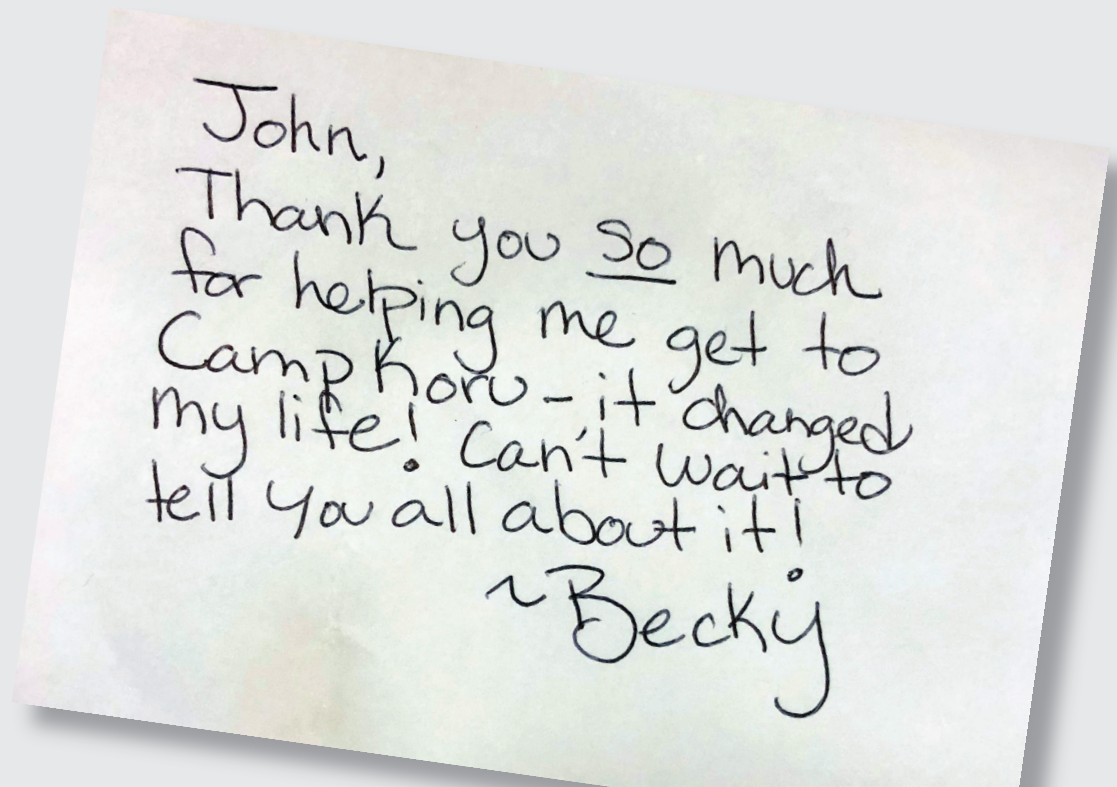 John,
Thank you so much
for helping me get to
Camp Koru - it changed
my life! Can't wait to
tell you all about it!
~Becky